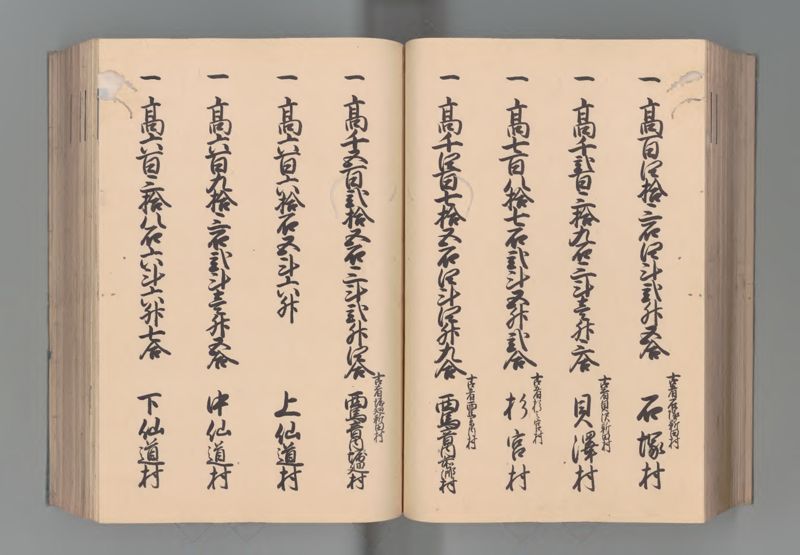 一 高百四拾三石四斗弐升五合
古者石塚新田村
石塚村
一 高千弐百三拾九石三斗壱升三合
古者貝沢新田村
貝澤村
一 高七百八拾七石弐斗五升弐合
古者杉之宮村
杉宮村
一 高千四百七拾五石四斗四升九合
古者西馬音内村
西馬音内
村
一 高千五百弐拾五石三斗弐升四合
古者堀廻新田村
西馬音内堀廻村
一 高六百六拾石五斗六升
上仙道村
一 高六百九拾三石弐斗壱升五合
中仙道村
一 高六百三拾八石六斗六升七合
下仙道村